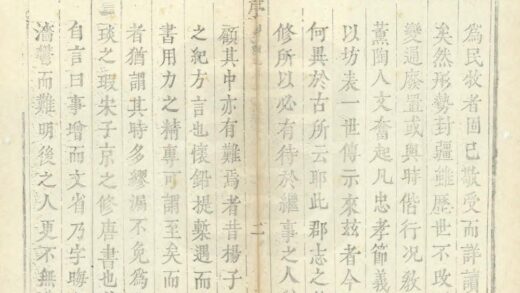 為民牧者固已敬受而詳讀
矣然形勢封疆雖歷世不改
變通廢置或與時偕行況教
薰陶人文奮起凡忠孝節義
以坊表一世傳示來玆者今
何異於古所云耶此郡志之
修所以必有待於繼事之人
序
二
顧其中亦有難焉者昔揚子
之紀方言也懷鉛提槧遇而
書用力之精專可謂至矣而
者猶謂其時多繆漏不免爲
琰之瑕宋子京之修唐書也
自言曰事增而文省乃字晦
而難明後之人更不無